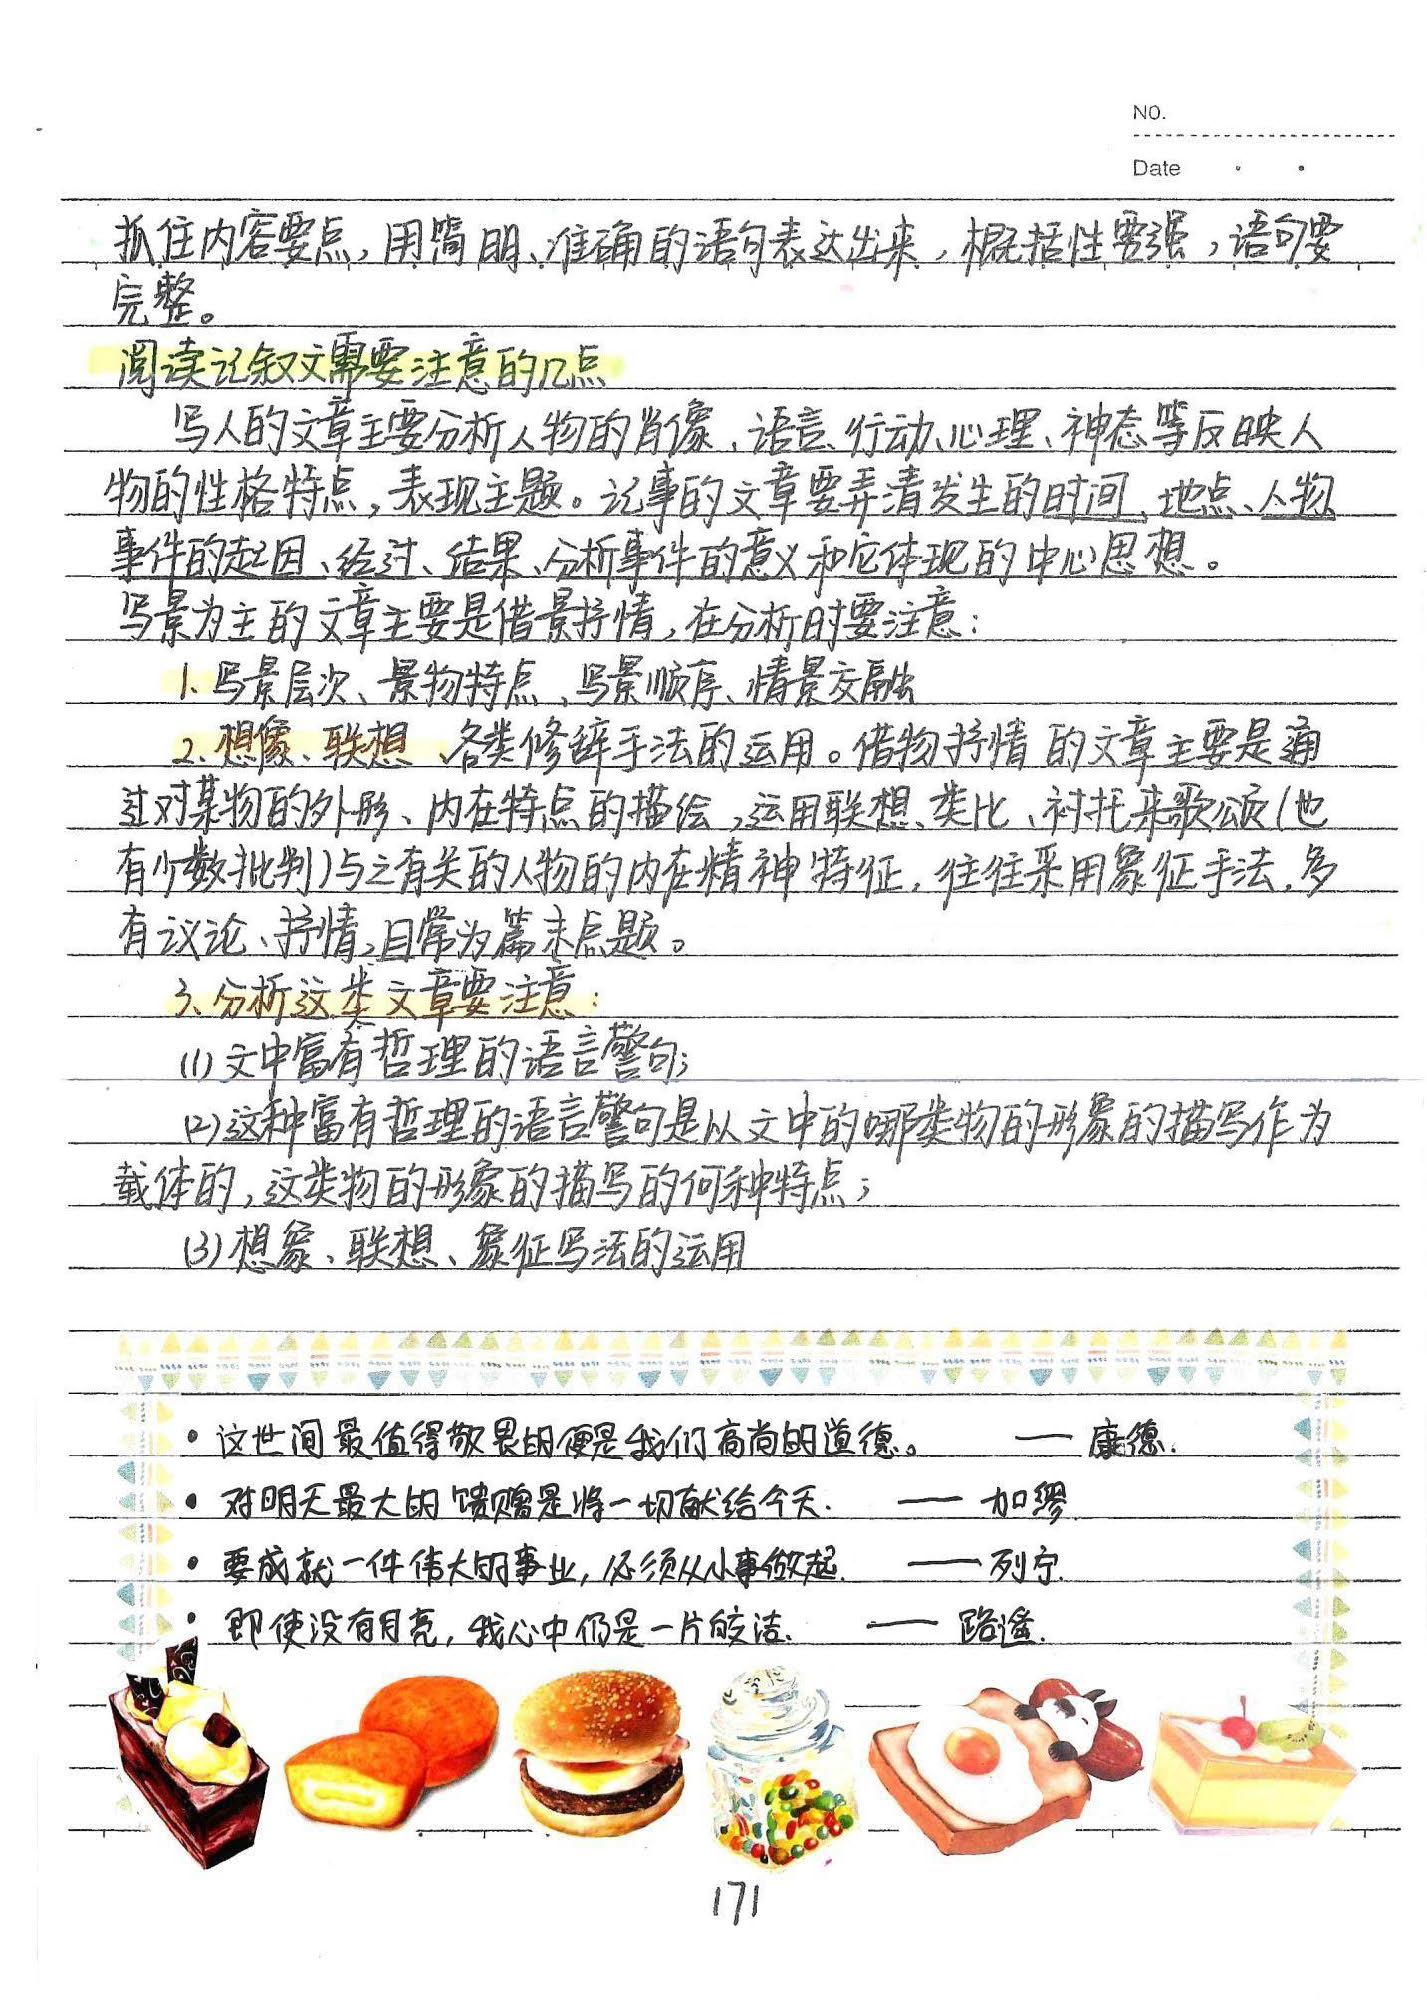 NO.
Date
抓住内容要点,用简明、准确的语句表达出来,概括性要强,语句要
完整。
阅读记叙文需要注意的几点
写人的文章主要分析人物的肖像、语言、行动、心理、神态等反映人
物的性格特点,表现主题。记事的文章要弄清发生的时间、地点、人物
事件的起因、经过、结果、分析事件的意义和它体现的中心思想。
写景为主的文章主要是借景抒情,在分析时要注意:
1.写景层次、景物特点、写景顺序、情景交融
2.想像、联想、各类修辞手法的运用。借物抒情的文章主要是通
过对某物的外形、内在特点的描绘,运用联想、类比、衬托来歌颂(也
有少数批判)与之有关的人物的内在精神特征,往往采用象征手法,多
有议论、抒情,且常为篇末点题。
3、分析这类文章要注意:
(1)文中富有哲理的语言警句;
(2)这种富有哲理的语言警句是以文中的哪类物的形象的描写作为
载体的,这类物的形象的描写的何种特点;
(3)想象、联想、象征写法的运用
• 这世间最值得敬畏的便是我们高尚的道德。 — 康德.
• 对明天最大的馈赠是将一切献给今天. — 加缪.
• 要成就一件伟大的事业,必须从小事做起. — 列宁.
• 即使没有月亮,我心中仍是一片皎洁. — 路遥.
171